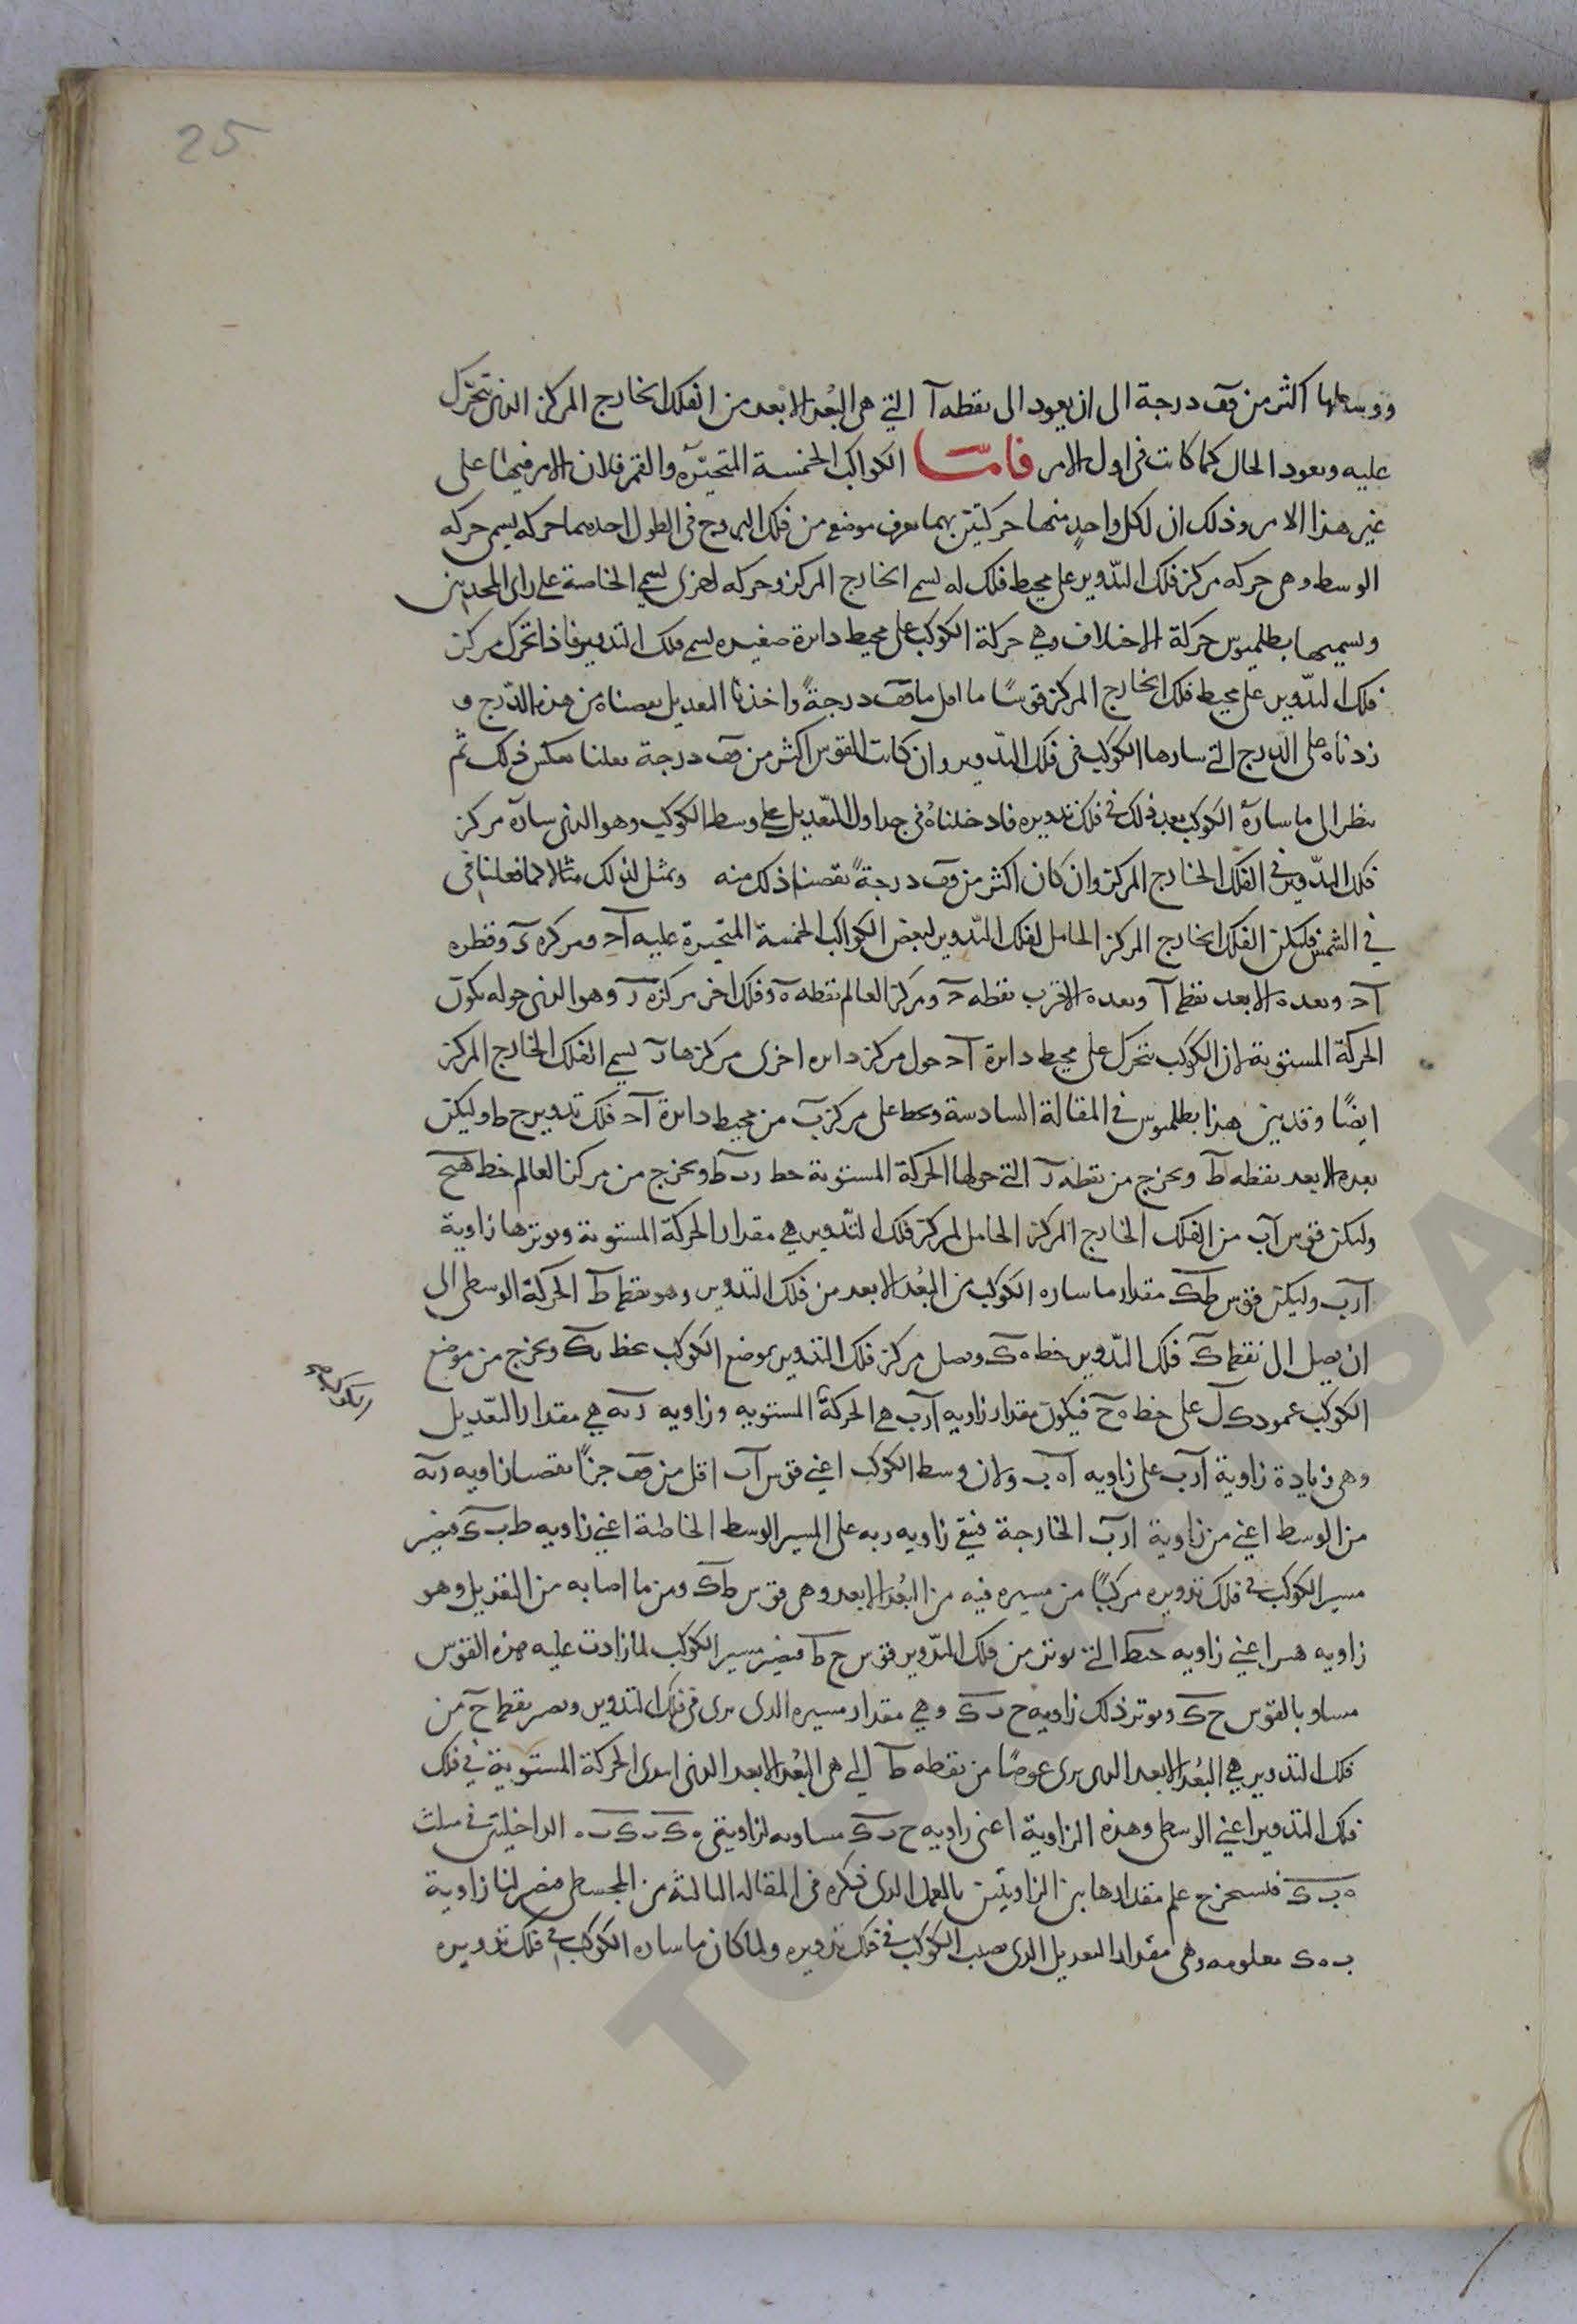 25
ووسطها اكثر من قف درجة الى ان يعود الى نقطه آ التي هي البُعد الابعد من الفلك الخارج المركز الذي تحرّك
عليه ويعود الحال كما كانت في اول الامر فامّا الكواكب الخمسة المتحيّرة والقمر فلان الامر فيها على
غير هذا الامر وذلك ان لكل واحدٍ منها حركتين بهما يعرف موضع من فلك البروج في الطول احدهما حركه يسمى حركه
الوسط وهى حركه مركز فلك التدوير على محيط فلك له يسمى الخارج المركز وحركه اخرى يسمى الخاصة على راى المحدثين
ويسميها بطلميوس حركة الاختلاف وهي حركة الكوكب على محيط دائرة صغيره يسمى فلك التدوير فاذا تحرك مركز
فلك التدوير على محيط فلك الخارج المركز قوسًا ما اقل ما قف درجةً واخذنا التعديل نقصناه من هذه الدرج و
زدناه على الدرج التى سارها الكوكب فى فلك التدوير وان كانت القوس اكثر من قف درجة فعلنا بعكس ذلك ثم
ينظر الى ما ساره الكوكب بعد ذلك في فلك تدويره فادخلناهُ فى جداول التعديل على وسط الكوكب وهو الذى ساره مركز
فلك التدوير في الفلك الخارج المركز وان كان اكثر من قف درجةً نقصنا ذلك منه ونمثل لذلك مثالا كما فعلنا في
في الشمس فليكن الفلك الخارج المركز الحامل لفلك التدوير لبعض الكواكب الخمسة المتحيرة عليه آحـ ومركزه ى وقطره
آحـ وبعده الابعد نقطة آ وبعده الاقرب نقطه حـ ومركز العالم نقطه ه وفلك اخر مركزه ر وهو الذى حوله يكون
الحركة المستوية لان الكوكب تتحرك على محيط دائرة آحـ حول مركز دائره اخرى مركزها ر يسمى الفلك الخارج المركز
ايضًا وقد بيّن هذا بطلميوس في المقالة السادسة ونخط على مركز ب من محيط دائرة آحـ فلك تدوير ح ط وليكن
بعده الابعد نقطه ط ونخرج من نقطه ر التي حولها الحركة المستوية خط ر ب ط ونخرج من مركز العالم خط هبح
وليكن قوس آب من الفلك الخارج المركز الحامل لمركز فلك التدوير هي مقدار الحركة المستوية ويوترها زاوية
آرب وليكن قوس طك مقدار ما ساره الكوكب من البُعد الابعد من فلك التدوير وهو نقطة ط الحركة الوسطى الى
ان يصل الى نقطة ك فلك التدوير خط ه ك ونصل مركز فلك التدوير بموضع الكوكب بخط ب ك ونخرج من موضع
الكوكب عمود ك ل على خط ه ح فيكون مقدار زاويه آرب هي الحركة المستويه وزاويه ربه هي مقدار التعديل
وهى زيادة زاوية آرب على زاويه آه ب ولان وسط الكوكب اعني قوس آب اقل من قف جزءًا نقصنا زاويه ربه
من الوسط اعني من زاوية ارب الخارجة فبقي زاويه ربه على المسير الوسط الخاصة اعني زاويه ط ب ك فيصير
مسير الكوكب في فلك تدويره مركبًا من مسيره فيه من البُعد الابعد وهى قوس طك ومن ما اصابه من التعديل وهو
زاويه هبر اعني زاويه حبط التي يوتر من فلك التدوير قوس ح ط فيصير مسير الكوكب لما زادت عليه هذه القوس
مساويا لقوس ح ك ويوتر ذلك زاويه ح ب ك وهي مقدار مسيره الذى يرى في فلك التدوير ويصير نقطة ح من
فلك التدوير هي البُعد الابعد الذى يرى عوضًا من نقطه ط التى هى البُعد الابعد الذى ابتدى الحركة المستوية في فلك
فلك التدوير اعني الوسطى وهذه الزاوية اعنى زاويه ح ب ك مساويه لزاويتى ه ك ب ك ب ه الداخلتين فى مثلث
ه ب ك فنستخرج علم مقدار هاتين الزاويتين بالعمل الذى ذكره فى المقاله الثالثة من المجسطى فيصير لنا زاوية
ب ه ك معلومه وهى مقدار التعديل الذى يصيب الكوكب في فلك تدويره ولما كان ما ساره الكوكب في فلك تدويره